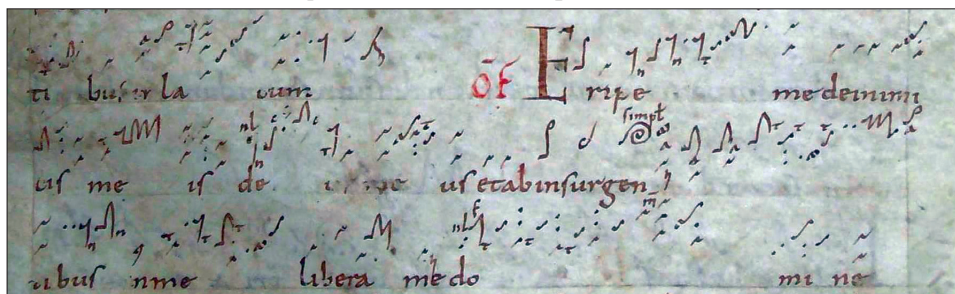 ti bus ir la cum of E ripe me de inimi
cis me is de us me us et ab insurgen
ti bus in me libera me do mi ne